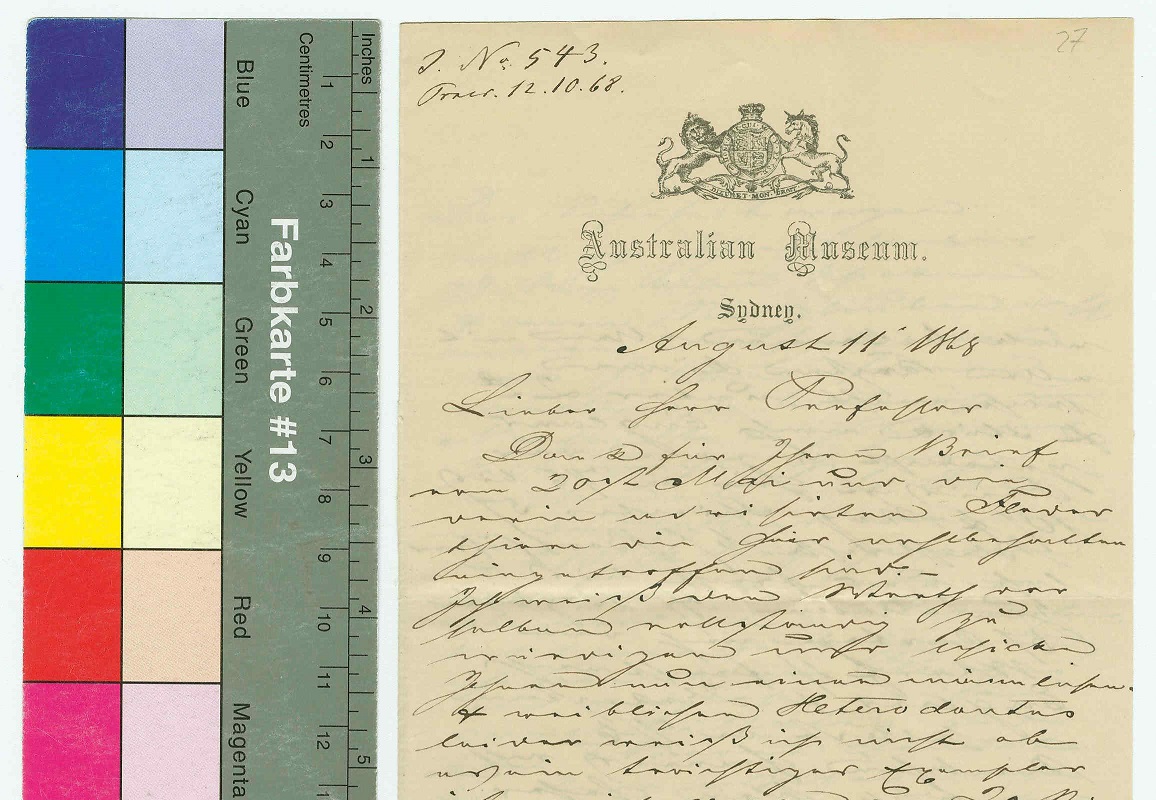 Blue
Cyan
Green
Yellow
Red
Magenta
Farbkarte #13
Centimetres
1
2
3
4
5
6
7
8
9
10
11
12
Inches
1
2
3
4
5
27
J. No. 543.
Praes. 12.10.68.
DIEU ET MON DROIT
Australian Museum.
Sydney.
August 11 1868
Lieber Herr Professor
Dank für Ihren Brief
vom 20st Mai und die
darin advisirten Fleder
thiere die hier wohlbehalten
eingetroffen sind —
Ich weiß den Werth der
selben vollständig zu
würdigen und schicke
Ihnen nun einen männlichen
& weiblichen Heterodontus
leider weiß ich nicht ob
es ein trächtiges Exemplar